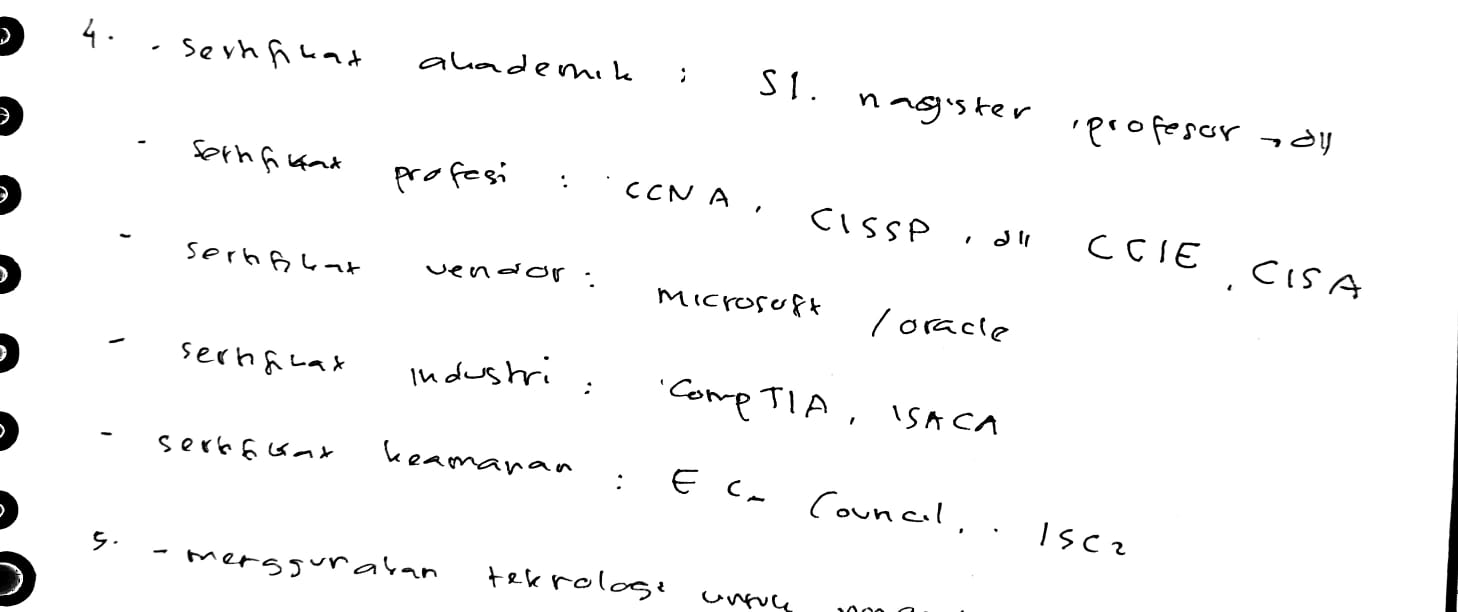 4. - Sertifikat akademik : S1. magister, profesor, dll
- Sertifikat profesi : CCNA, CISSP, dll CCIE, CISA
- sertifikat vendor : Microsoft / oracle
- sertifikat Industri : CompTIA, ISACA
- sertifikat keamanan : EC - Council, ISC2
5. - menggunakan teknologi untuk